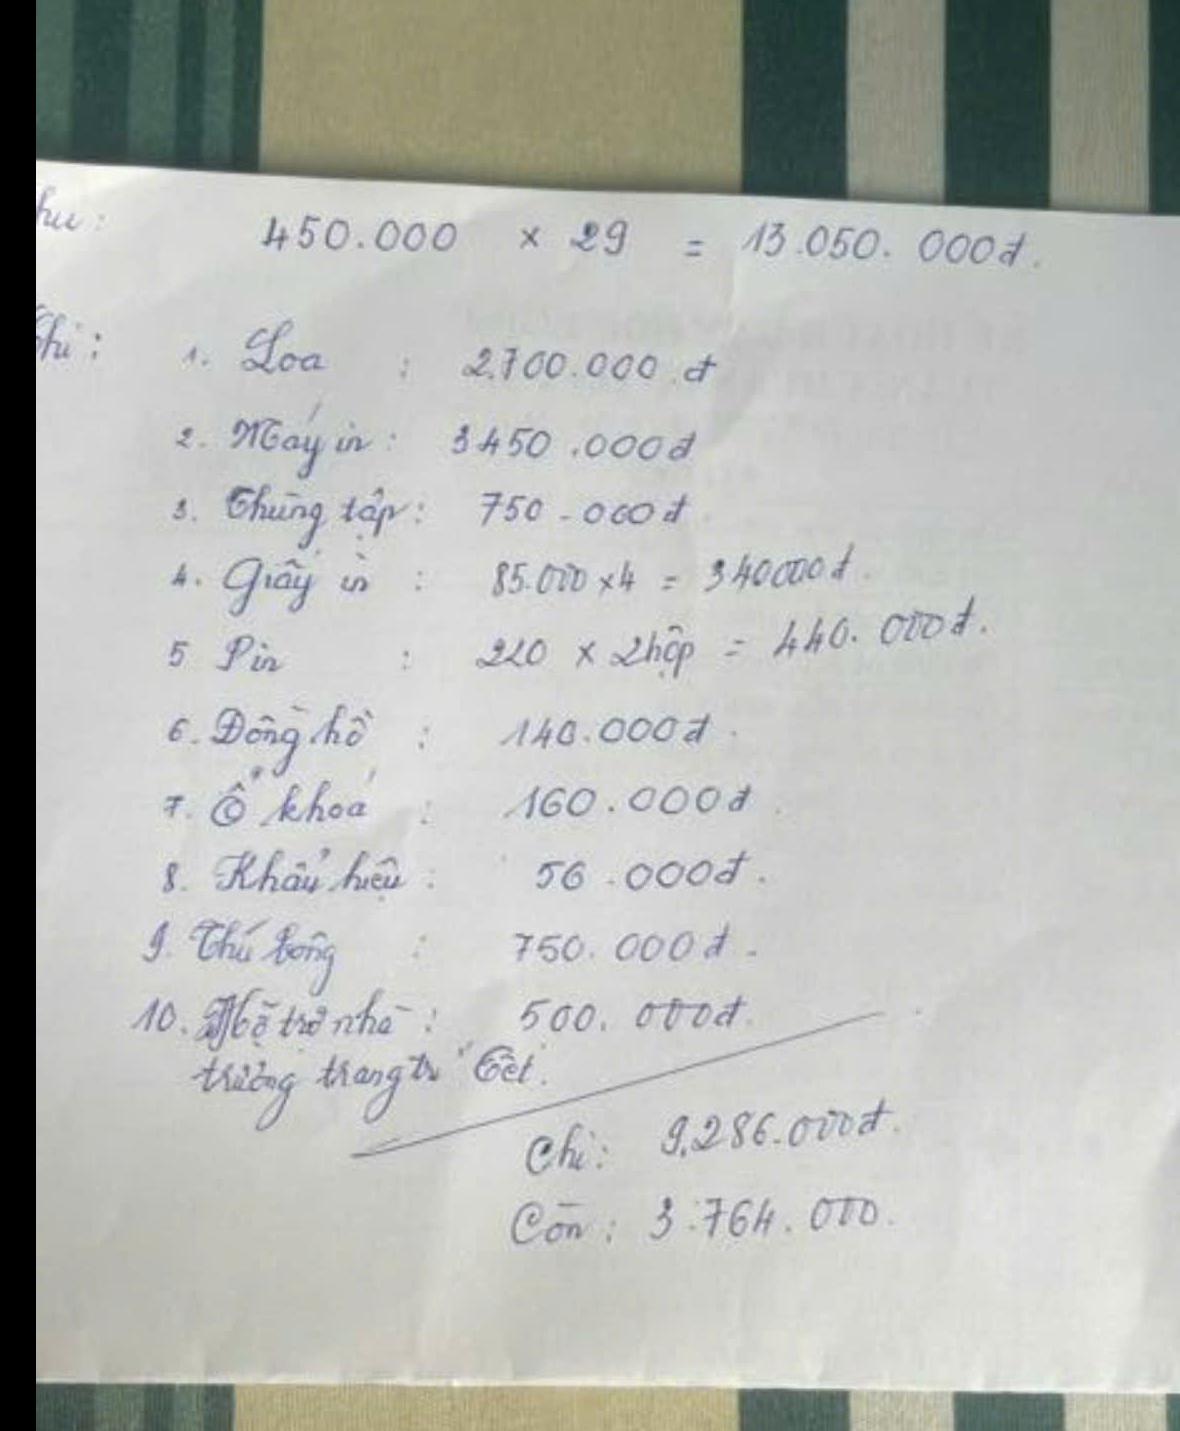 Thu: 450.000 × 29 = 13.050.000đ.
Chi: 1. Loa : 2.700.000đ
2. Máy in: 3450.000đ
3. Thùng tập: 750.000đ
4. Giấy in : 85.000 × 4 = 340000đ.
5 Pin : 220 × 2hộp = 440.000đ.
6. Đồng hồ : 140.000đ.
7. Ổ khoá : 160.000đ
8. Khẩu hiệu : 56.000đ.
9. Thú bông : 750.000đ.
10. Hỗ trợ nhà : 500.000đ.
trường trang trí Tết.
Chi: 9.286.000đ.
Còn: 3.764.000.